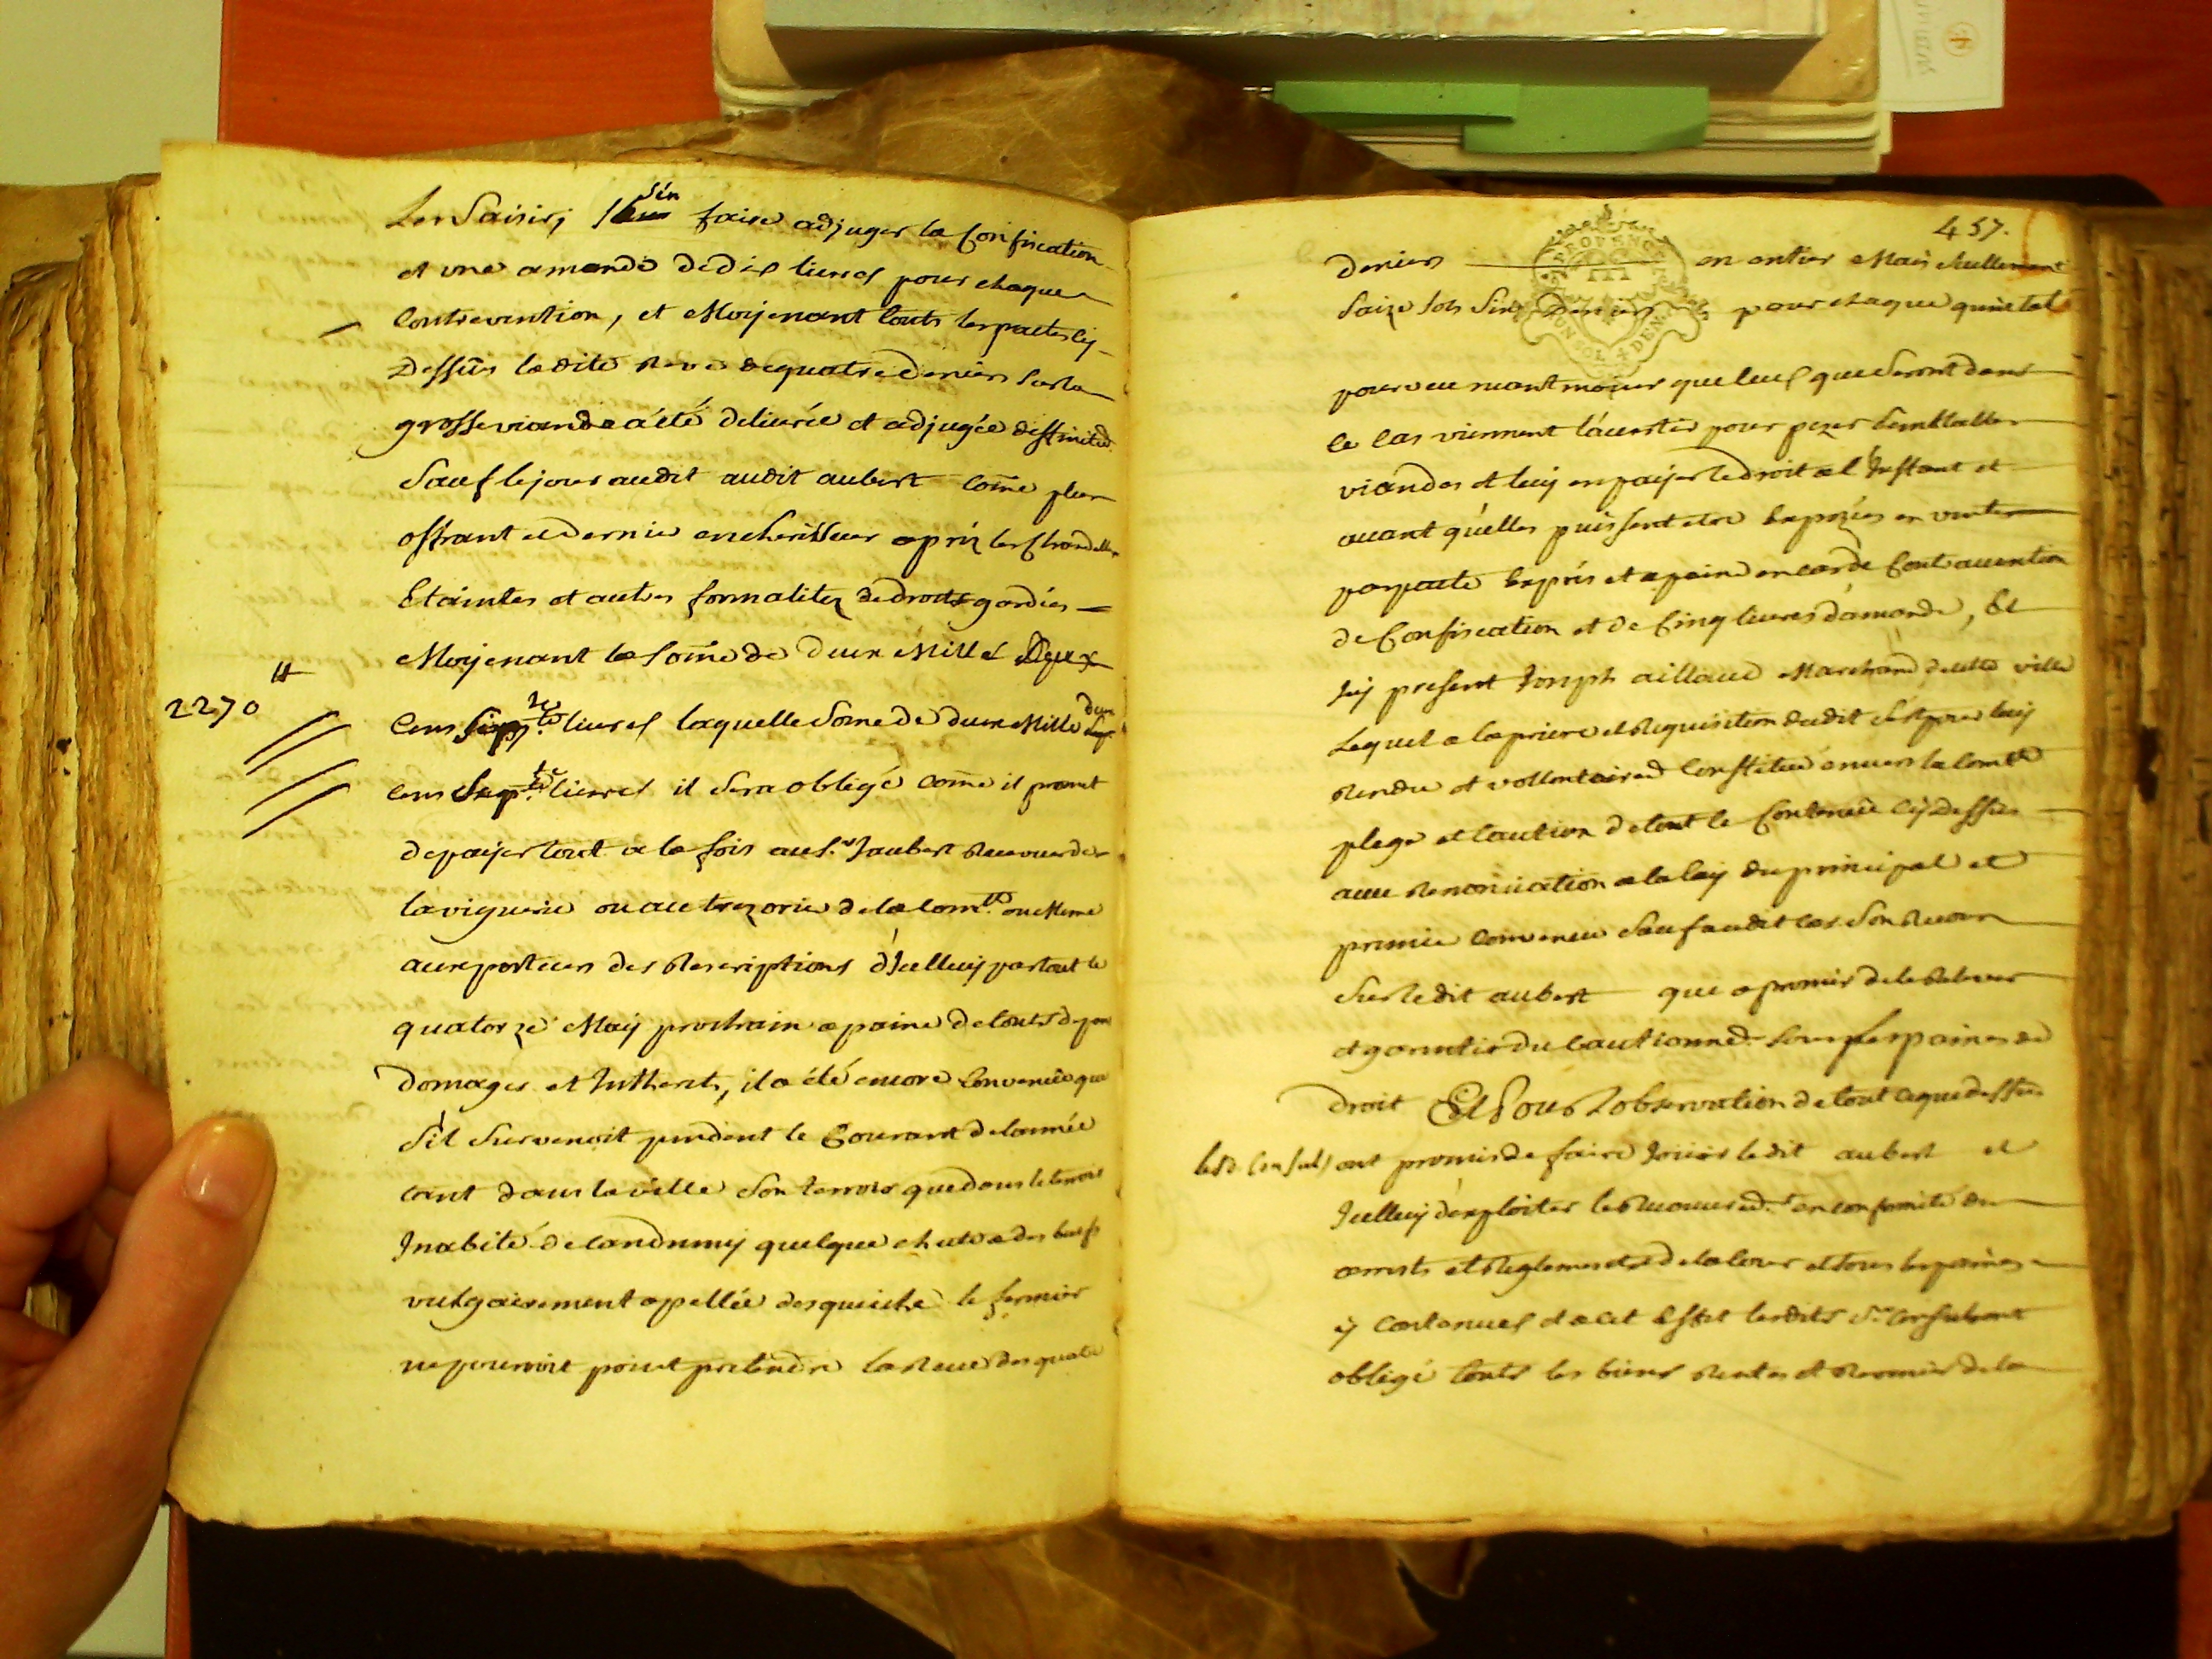 Les Saisir, S'en faire adjuger la Confiscation
et une amande de dix livres pour chaque
Contrevention, et Moyenant touts les pactes cy
Dessus ladite Reve de quatre deniers sur la
grosse viande a été delivrée et adjugée diffinitivt.
Sauf le jour audit audit aubert Come plus
offrant et dernier encherisseur aprez les Chandelles
Etaintes et autres formalitez de droits gardées
Moyenant la some de deux Mille Deux
2270 ₶
Cens livres laquelle Some de deux Mille deux
Cens livres il sera obligé Come il promet
de payer tout a la fois au sr. Jaubert Receveur des
la viguerie ou au trezorier de la Comté. ou Meme
aux porteurs des Rescriptions d'Icelluy par tout le
quatorze May prochain a paine de touts depens
Domages et Intherets, il a été encore Convenu que
S'il Survenoit pendent le Courant de l'année
tant dans la ville Son terroir que dans le terroir
Inabité de quelque chute des bœufs
vulgairement apellée desquiche le fermier
ne pourroit point pretendre la Reve des quatre
457.
deniers en entier Mais Sullement
Saize Sols Six Deniers pour chaque quintal
pourveu neantmoins que ceux que seront dans
le Cas viennent l'avertir pour pezer semblables
viandes et luy en payer le droit a l'Instant et
avant qu'elles puissent etre Expozées en vente
par pacte Exprés et a paine en cas de Contravention
de Confiscation et de Cinq livres d'amande, Et
Icy present Joseph aillaud Marchand de cette ville
Lequel a la priere et Requisition dudit s'est pour luy
Rendu et vollontairet Constitué envers la Comté
plege et Caution de tout le Contenu cy Dessus
avec Renonciation a la loy du principal et
premier convenu Sauf audit cas Son Recours
Sur ledit aubert que a promis de le Relever
et garantir du Cautionnet. Sous les paines de
Droit Et Sous l'observation de tout ce que dessus
lesd. Consuls ont promis de faire Jouir ledit aubert et
Icelluy d'exploiter les en conformité des
arrests et Reglements de la Cour et sous les paines
y Contenues et a cet Effet lesdits Srs Consuls ont
obligé touts les biens Rentes et Revenus de la